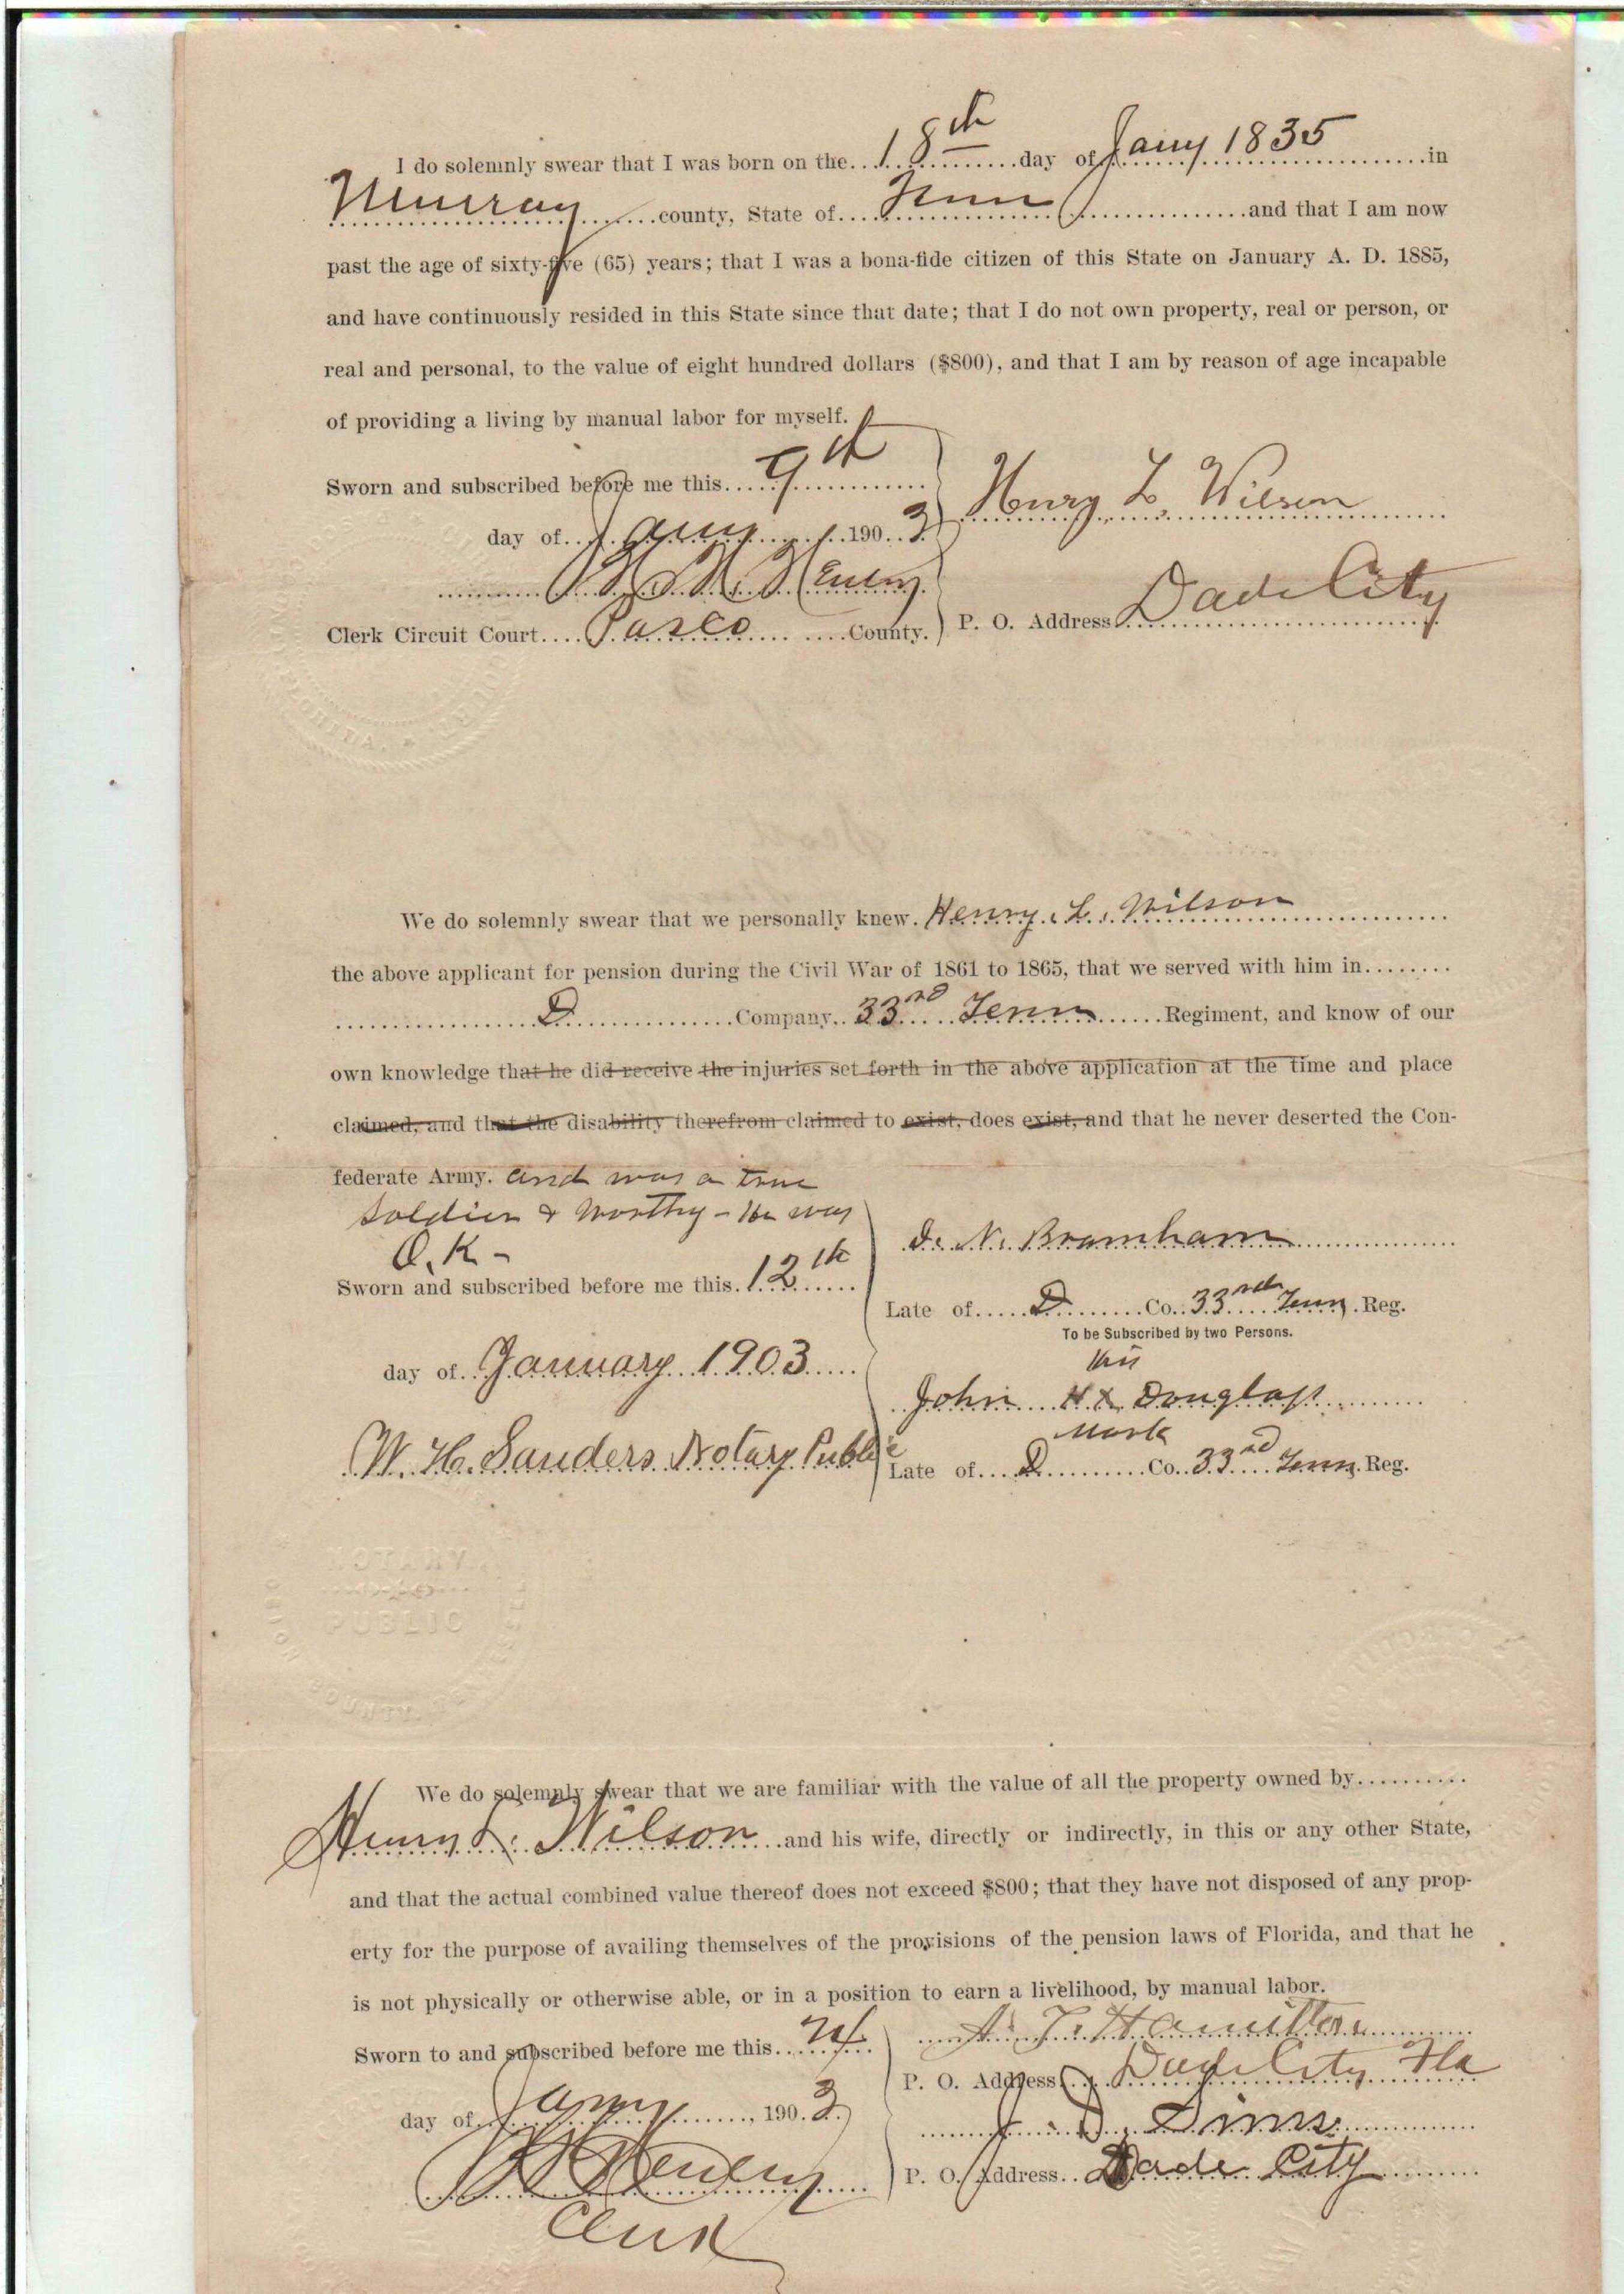 I do solemnly swear that I was born on the 18th day of Jany 1835 in
Murray county, State of Tenn and that I am now
past the age of sixty-five (65) years; that I was a bona-fide citizen of this State on January A. D. 1885,
and have continuously resided in this State since that date; that I do not own property, real or person, or
real and personal, to the value of eight hundred dollars ($800), and that I am by reason of age incapable
of providing a living by manual labor for myself.
Sworn and subscribed before me this 9th
day of Jany 1903
Henry L. Wilson
Clerk Circuit Court Pasco County.
P. O. Address Dade City
FLORIDA.
We do solemnly swear that we personally knew Henry L. Wilson
the above applicant for pension during the Civil War of 1861 to 1865, that we served with him in
D Company, 33rd Tenn Regiment, and know of our
own knowledge that he did receive the injuries set forth in the above application at the time and place
claimed, and that the disability therefrom claimed to exist, does exist, and that he never deserted the Con-
federate Army. and was a true
soldier & worthy - He was
O.K -
Sworn and subscribed before me this 12th
day of January 1903
W. H. Sanders Notary Public
N. Bramham
Late of D Co. 33rd Tenn Reg.
To be Subscribed by two Persons.
his
John H X Douglass
mark
Late of D Co. 33rd Tenn Reg.
NOTARY
PUBLIC
OBION COUNTY, TENNESSEE
We do solemnly swear that we are familiar with the value of all the property owned by
Henry L. Wilson and his wife, directly or indirectly, in this or any other State,
and that the actual combined value thereof does not exceed $800; that they have not disposed of any prop-
erty for the purpose of availing themselves of the provisions of the pension laws of Florida, and that he
is not physically or otherwise able, or in a position to earn a livelihood, by manual labor.
Sworn to and subscribed before me this 24
day of Jany, 1903
Clerk
A. J. Hamilton
P. O. Address Dade City Fla
J. D. Sims
P. O. Address Dade City